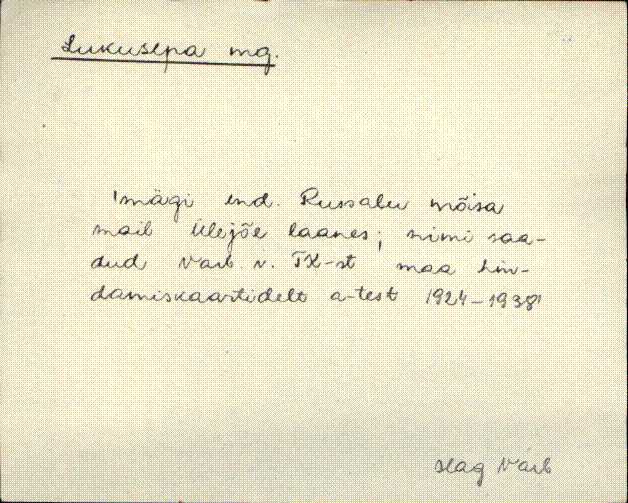 Lukusepa mg.
'mägi end. Russalu mõisa
mail Ülejõe laanes; nimi saa-
dud Varb. v. TK-st maa hin-
damiskaartidelt a-test 1924-1938'
Hag Varb